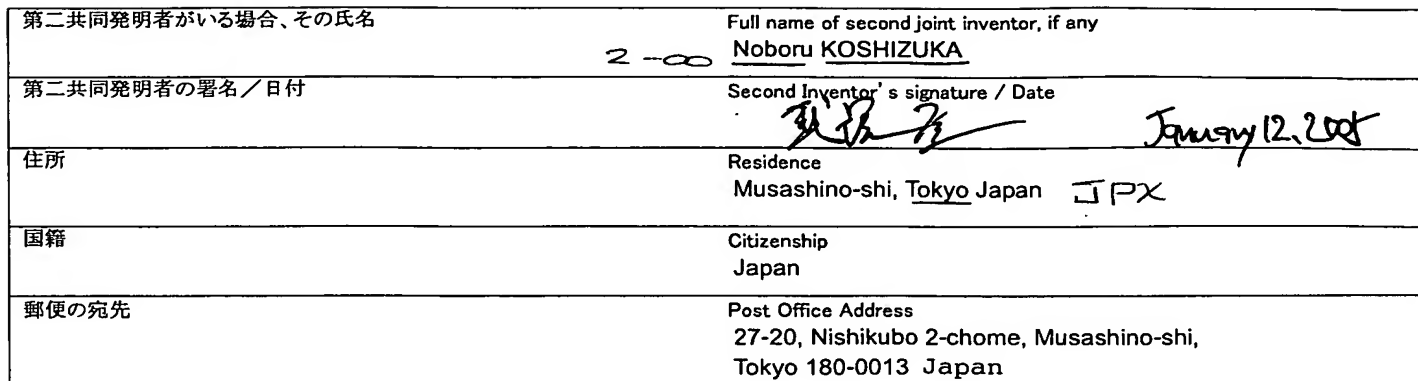 第二共同発明者がいる場合、その氏名
Full name of second joint inventor, if any
2-00 Noboru KOSHIZUKA
第二共同発明者の署名／日付
Second Inventor's signature / Date
January 12, 2005
住所
Residence
Musashino-shi, Tokyo Japan JPX
国籍
Citizenship
Japan
郵便の宛先
Post Office Address
27-20, Nishikubo 2-chome, Musashino-shi,
Tokyo 180-0013 Japan